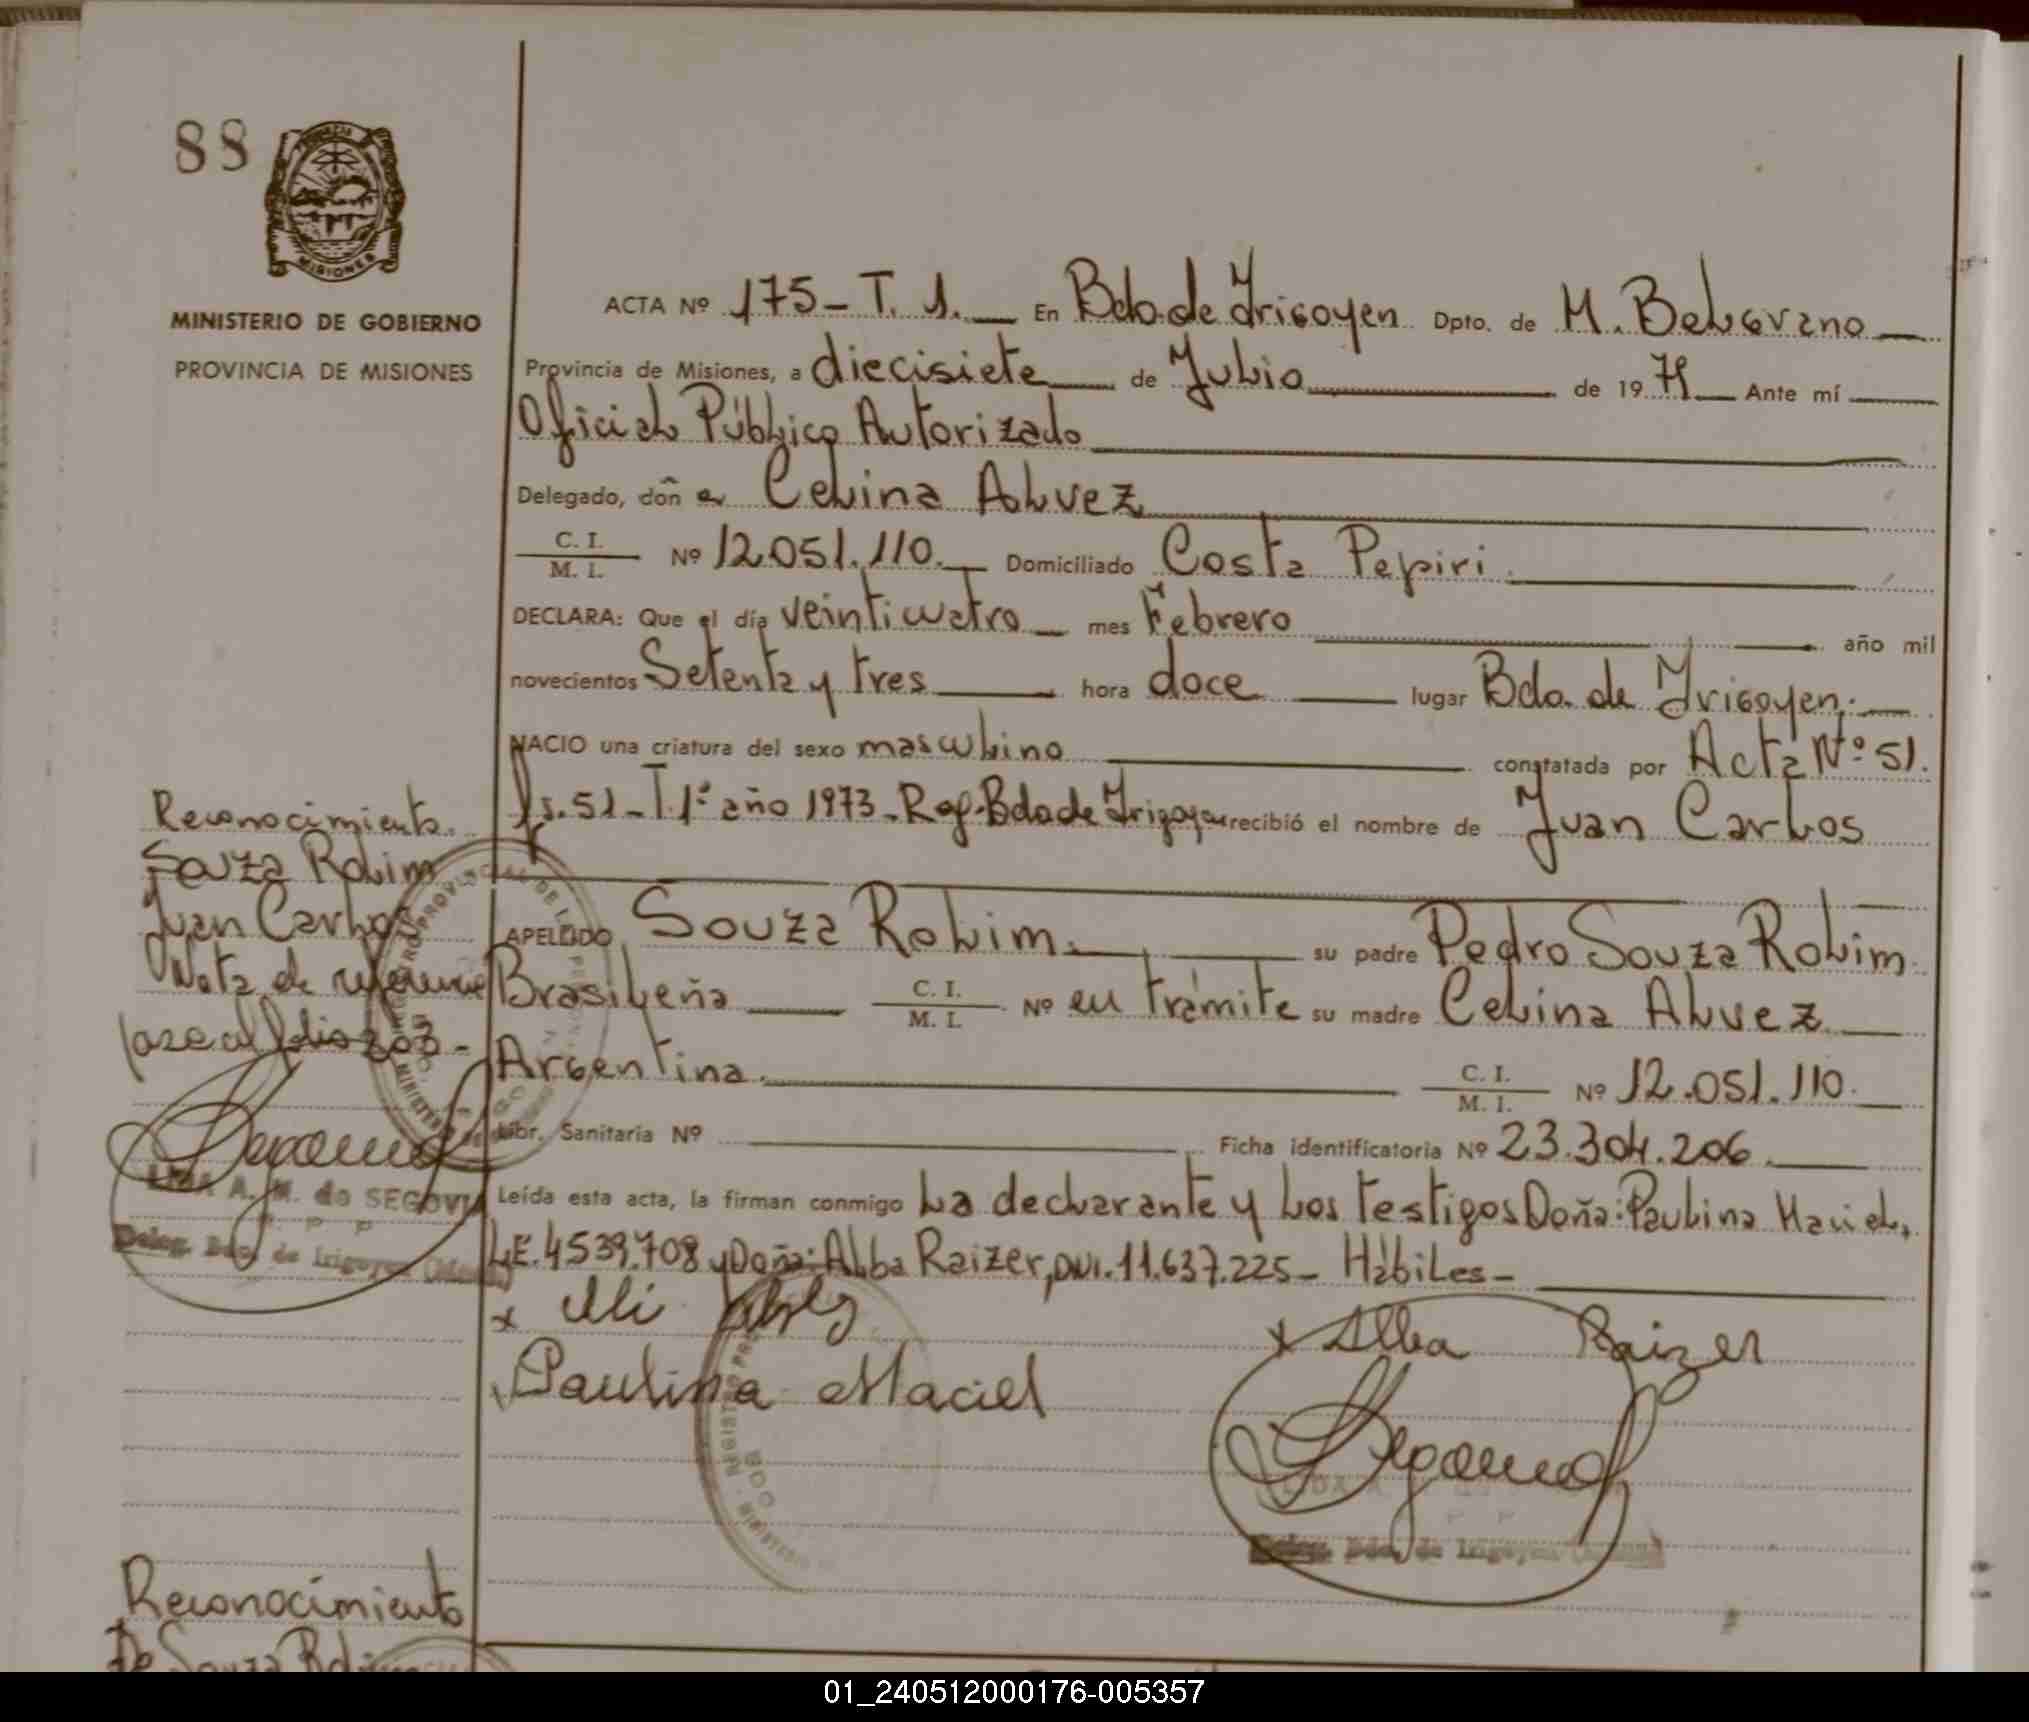 88
MISIONES
MINISTERIO DE GOBIERNO
PROVINCIA DE MISIONES
ACTA Nº 175-T. 1. En Bdo. de Irigoyen Dpto. de M. Belgrano
Provincia de Misiones, a diecisiete de Julio de 19 Ante mí
Oficial Público Autorizado
Delegado, doñ a Celina Alvez
C. I. / M. I. Nº 12.051.110. Domiciliado Costa Pepiri
DECLARA: Que el día veinticuatro mes Febrero año mil
novecientos Setenta y tres hora doce lugar Bdo. de Irigoyen.
NACIO una criatura del sexo masculino constatada por Acta Nº 51.
fs. 51-T. 1º año 1973-Reg. Bdo de Irigoyen recibió el nombre de Juan Carlos
APELLIDO Souza Rolim. su padre Pedro Souza Rolim
Brasileña C. I. / M. I. Nº en trámite su madre Celina Alvez
Argentina. C. I. / M. I. Nº 12.051.110.
Libr. Sanitaria Nº Ficha identificatoria Nº 23.304.206.
Leída esta acta, la firman conmigo la declarante y los testigos Doña: Paulina Maciel,
LE. 4539.708 y Doña: Alba Raizer, DNI. 11.637.225- Hábiles-
x
Paulina Maciel
x Alba Raizer
Deleg. Bdo. de Irigoyen
Reconocimiento.
Souza Rolim
Juan Carlos
Nota de referencia
pase al folio 203-
LIDIA A. M. de SEGOVIA
Deleg. Bdo. de Irigoyen
Reconocimiento
De Souza Rolim
01_240512000176-005357